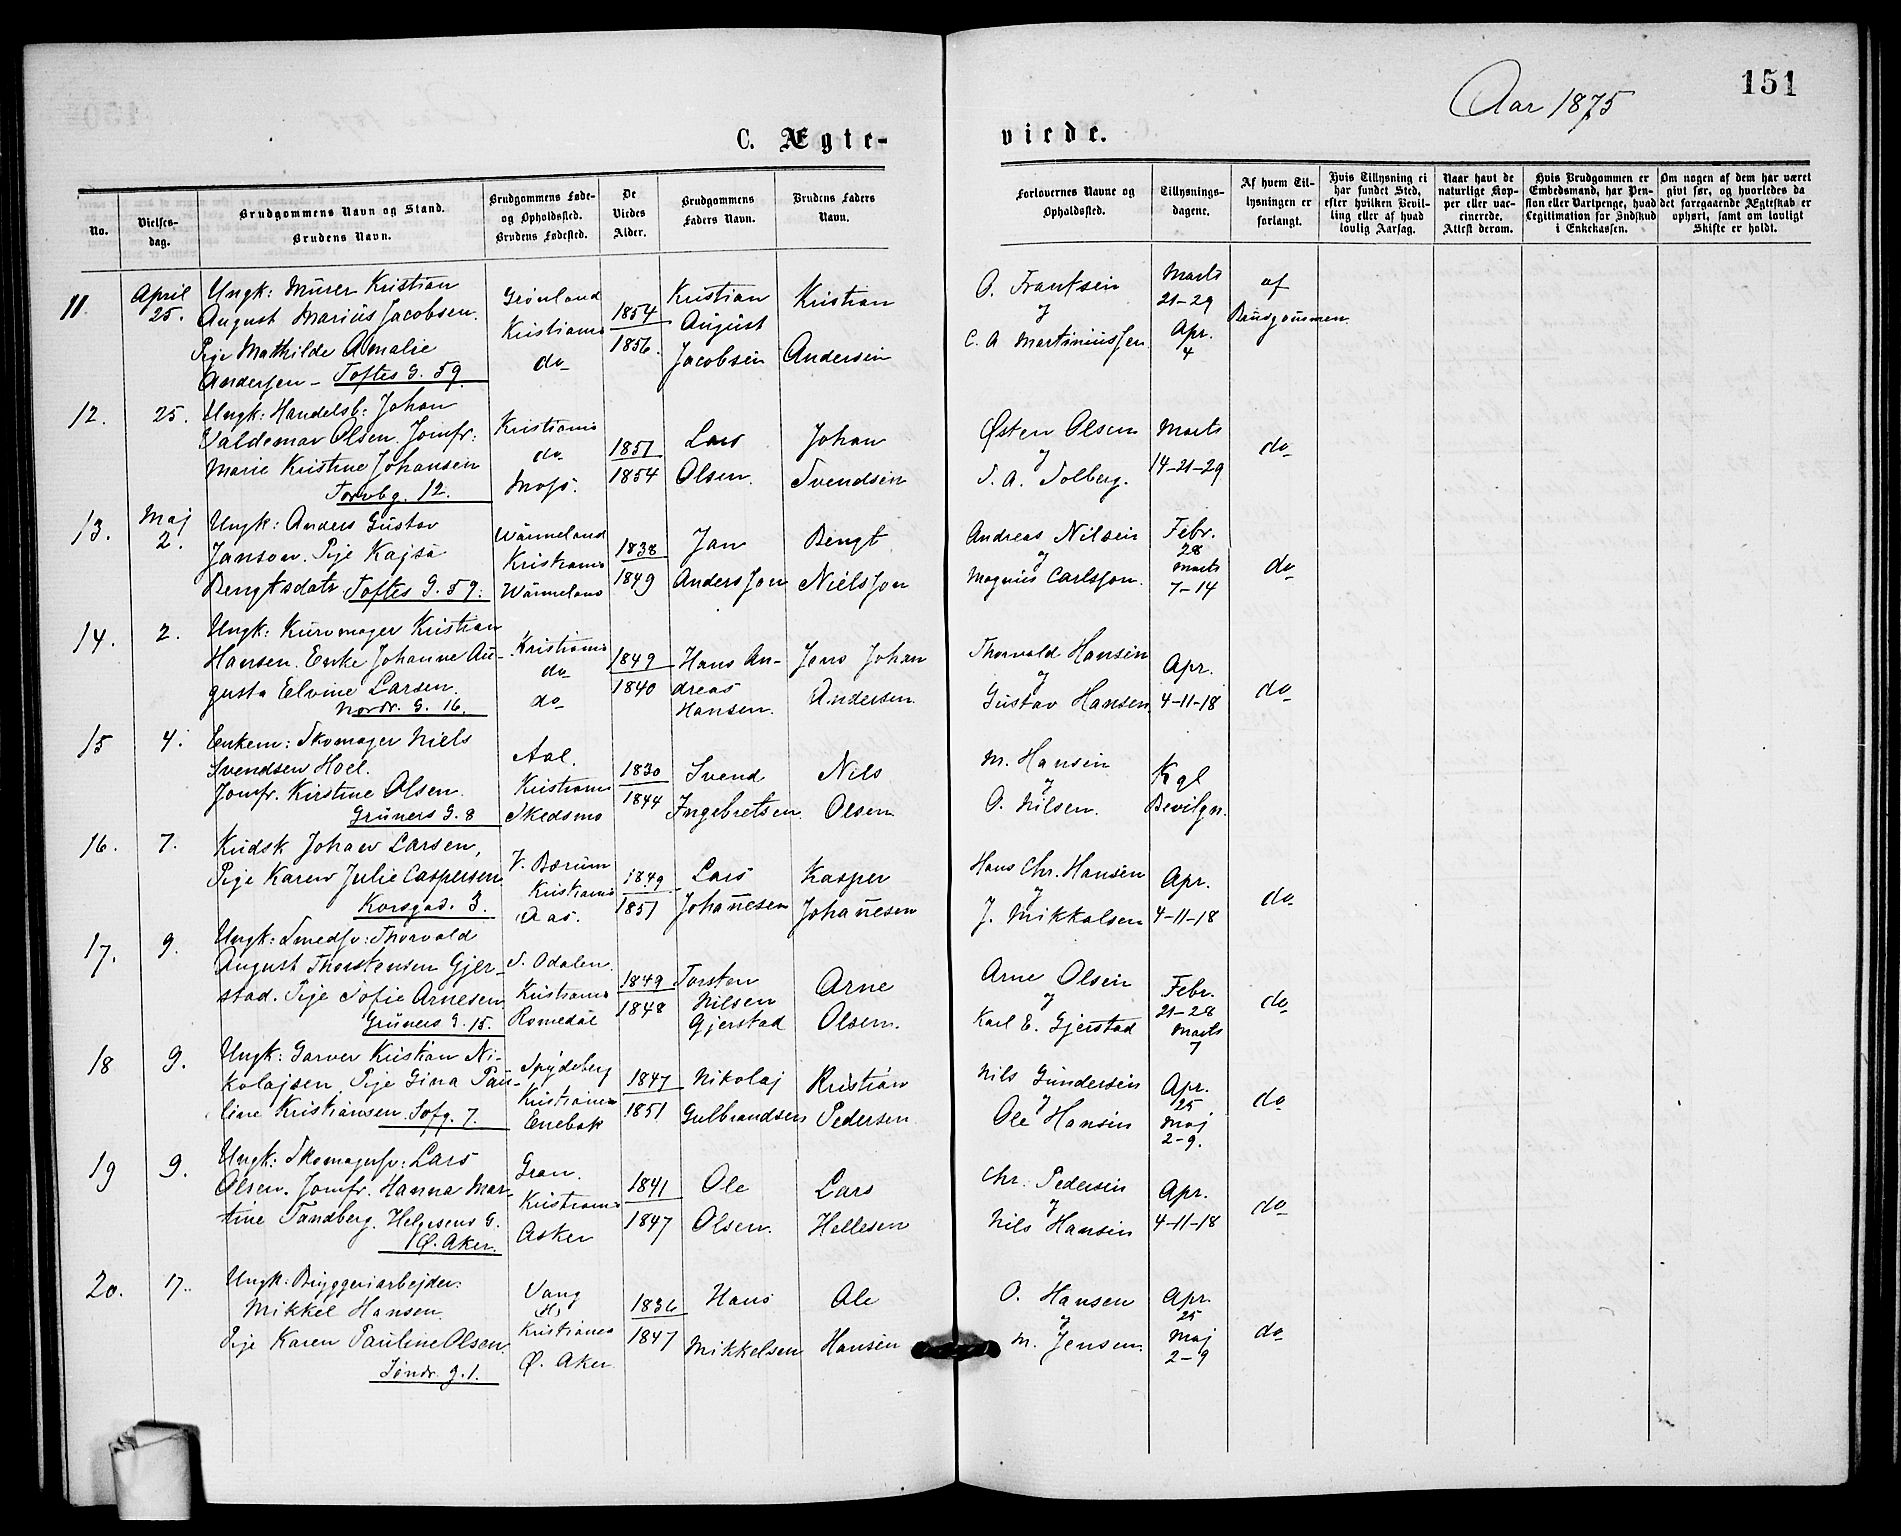 Aar 1875
151
C. Ægte-
viede.
No.
Vielses-
dag.
Brudgommens Navn og Stand.
Brudens Navn.
Brudgommens Føde-
og Opholdssted.
Brudens Fødested.
De
Viedes
Alder.
Brudgommens
Faders Navn.
Brudens Faders
Navn.
Forlovernes Navne og
Opholdssted.
Tillysnings-
dagene.
Af hvem Til-
lysningen er
forlangt.
Hvis Tillysning ei
har fundet Sted,
efter hvilken Bevil-
ling eller af hvad
lovlig Aarsag.
Naar havt de
naturlige Kop-
per eller vac-
cinerede.
Attest derom.
Hvis Brudgommen er
Embedsmand, har Pen-
sion eller Vartpenge, hvad
Legitimation for Indskud
i Enkekassen.
Om nogen af dem har været
givt før, og hvorledes da
det foregaaende Ægteskab er
ophørt, samt om lovligt
Skifte er holdt.
11.
April
25.
Ungk: Murer Kristian
August Marius Jacobsen.
Pige Mathilde Amalie
Andersen - Toftes G. 59.
Grønland
Kristiania
do
1854
1856.
Kristian
August
Jacobsen
Kristian
Andersen
O. Frantsen
og
C. A Martiniussen
Marts
21-29
Apr.
4
af
Brudgommen.
12.
25.
Ungk: Handelsb: Johan
Valdemar Olsen. Jomfr:
Marie Kristine Johansen
Torvbg. 12.
Kristiania
do
Moss.
1851
1854
Lars
Olsen.
Johan
Svendsen
Østen Olsen
og
S. A. Solberg.
Marts
14-21-29
do
13.
Maj
2.
Ungk: Anders Gustav
Janson. Pige Kajsa
Bengtsdatr Toftes G. 59.
Wärmeland
Kristiania
Wärmeland
1838
1849
Jan
Andersson
Bengt
Nielsson
Andreas Nilsen
og
Magnus Carlsson.
Febr.
28
Marts
7-14
do
14.
2.
Ungk: Kurvmager Kristian
Hansen. Enke Johanne Au-
gusta Elvine Larsen.
Nordr. G. 16.
Kristiania
do
do
1849
1840
Hans An-
dreas
Hansen.
Jens Johan
Andersen.
Thorvald Hansen
og
Gustav Hansen
Apr.
4-11-18
do
15
4.
Enkem: Skomager Niels
Svendsen Hoel.
Jomfr. Kirstine Olsen.
Grüners G. 8
Aal.
Kristiania
Skedsmo
1830
1844
Svend
Ingebretsen
Nils
Olsen
M. Hansen
og
O. Nilsen.
Kgl
Bevilgn.
16.
7.
Kudsk Johan Larsen,
Pige Karen Julie Caspersen
Korsgad. 3.
V. Bærum
Kristiania
Aas.
1849
1851
Lars
Johannesen
Kasper
Johannesen
Hans Chr. Hansen
og
J. Mikkalsen
Apr.
4-11-18
do
17.
9.
Ungk: Smedsv: Thorvald
August Thorstensen Gjer-
stad. Pige Sofie Arnesen
Grüners G. 15.
S. Odalen.
Kristiania
Romedal
1849
1848
Torsten
Nilsen
Gjerstad
Arne
Olsen.
Arne Olsen
og
Karl E. Gjerstad
Febr.
21-28
Marts
7
do
18
9.
Ungk: Garver Kristian Ni-
kolajsen. Pige Gina Pau-
line Kristiansen. Sofg. 7.
Spydeberg
Kristiania
Enebak
1847
1851
Nikolaj
Gulbrandsen
Kristian
Pedersen
Nils Gundersen
og
Ole Hansen
Apr.
25
Maj
2-9.
do
19
9.
Ungk: Skomagersv: Lars
Olsen. Jomfr. Hanna Mar-
tine Sandberg. Helgesens G.
Ø. Aker.
Gran.
Kristiania
Asker
1841
1847
Ole
Olsen.
Lars
Hellesen
Chr. Pedersen
og
Nils Hansen
Apr.
4-11-18
do
20.
17.
Ungk: Bryggeriarbejder:
Mikkel Hansen.
Pige Karen Pauline Olsen.
Søndr. g. 1.
Vang
H)
Kristiania
Ø. Aker
1836
1847
Hans
Mikkelsen
Ole
Hansen
O. Hansen
og
M. Jensen.
Apr.
25
Maj
2-9
do